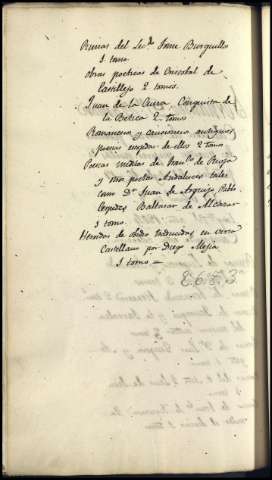 Rimas del Licdo Tome Burguillo
1 tomo
obras poeticas de Cristobal de
Castillejo 2 tomos.
Juan de la Cueva Conquista de
la Betica 2 tomos
Romancero y cancionero antiguos
de ellos 2 tomos
Poesias ineditas de Franco de Rioja
y otros poetas Andaluces tales
como Dn Juan de Arguijo Pablo
Cespedes Baltasar de Alcazar
1 tomo
Heroidas de Obidio traducidas en verso
Castellano por Diego Mejia
1 tomo =